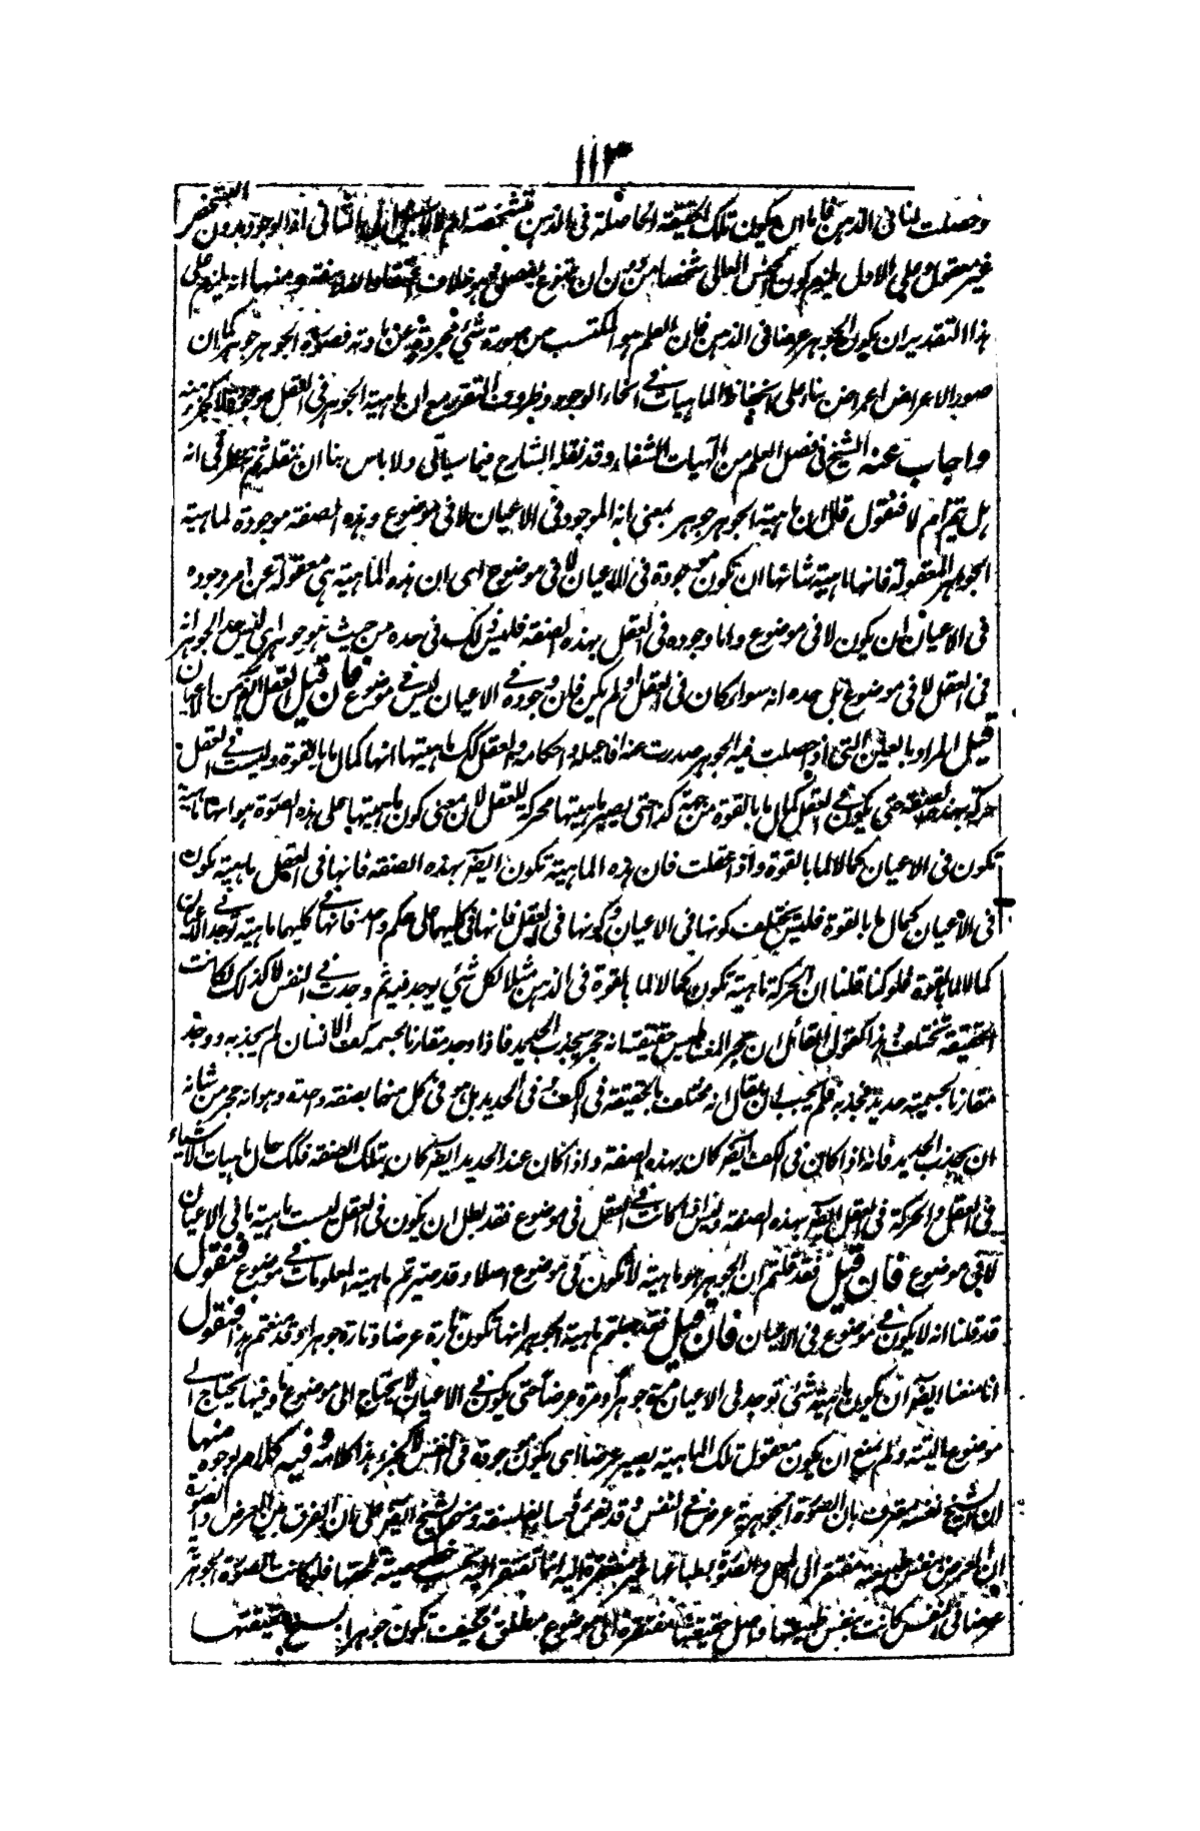 ١١٣
وحصلت لنا فى الذهن فاما ان يكون تلك الحقيقة الحاصلة فى الذهن متشخصة ام لا لا سبيل الى الثانى اذ الوجود بدون التشخص
غير معقول وعلى الاول يلزم كون الجنس العالى شخصا من دون ان يتنوع بفصل وهو خلاف ومنها انه يلزم على
هذا التقدير ان يكون الجوهر عرضا فى الذهن فان العلم هو المكتسب من صورة شئ مجردة عن مادته فصورة الجوهر جوهر كما ان
صور الاعراض اعراض بناء على انحفاظ الماهيات فى انحاء الوجود وظروف التقرر مع ان ماهية الجوهر فى العقل موجودة لا كجزء منه
واجاب عنه الشيخ فى فصل العلم من الٓهيات الشفاء وقد نقله الشارح فيما سياتى ولا باس بنا ان ننقله ثم ننظر فى انه
هل يتم ام لا فنقول قال ان ماهية الجوهر جوهر بمعنى بانه الموجود فى الاعيان لا فى موضوع وهذه الصفة موجودة لماهية
الجوهر المعقولة فانها ماهية شانها ان تكون موجودة فى الاعيان لا فى موضوع اى ان هذه الماهية هى معقولة عن امر وجوده
فى الاعيان ان يكون لا فى موضوع واما وجوده فى العقل بهذه الصفة فليس ذلك فى حده من حيث هو جوهر اى ليس حد الجوهر انه
فى العقل لا فى موضوع بل حده انه سواء كان فى العقل او لم يكن فان وجوده فى الاعيان ليس فى موضوع فان قيل العقل ايضٓ من الاعيان
قيل المراد بالعين التى اذ حصلت فيه الجوهر صدرت عنه افاعيله واحكامه والعقل كك ماهيتها انها كمال ما بالقوة وليست فى العقل
حركة بهذه الصفة حتى يكون فى العقل كمال ما بالقوة من جهة كذا حتى يصير ماهيتها محركة للعقل لان معنى كون ماهيتها على هذه الصورة هو انها ماهية
تكون فى الاعيان كمالا لما بالقوة واذ اعقلت فان هذه الماهية تكون ايضٓ بهذه الصفة فانها فى العقل ماهية تكون
فى الاعيان كمال ما بالقوة فليس يختلف كونها فى الاعيان وكونها فى العقل فانها فى كليهما على حكم واحد فانها فى كليهما ماهية توجد فى الاعيان
كمالا لما بالقوة فلو كنا قلنا ان الحركة ماهية تكون كمالا لما بالقوة فى الذهن مثلا لكل شئ يوجد فيه ثم وجدت فى النفس لا كذلك لكانت
الحقيقة تختلف وهذا كقول القائل ان حجر المغناطيس حقيقته انه حجر يجذب الحديد فاذا وجد مقارنا لجسمية كف الانسان لم يجذبه ووجد
مقارنا لجسمية حديد فجذبه فلم يجب ان يقال انه مختلف بالحقيقة فى الكف وفى الحديد بل هو فى كل منهما بصفة واحدة وهو انه حجر من شانه
ان يجذب الحديد فانه اذا كان فى الكف ايضٓ كان بهذه الصفة واذا كان عند الحديد ايضٓ كان بتلك الصفة فكك حال ماهيات الاشياء
فى العقل والحركة فى العقل ايضٓ بهذه الصفة وليس اذا كانت فى العقل فى موضوع فقد بطل ان يكون فى العقل ليست ماهية ما فى الاعيان
لا فى موضوع فان قيل فقد قلتم ان الجوهر هو ماهيته لا تكون فى موضوع اصلا وقد صيرتم ماهية المعلومات فى موضوع فنقول
قد قلنا انه لا يكون فى موضوع فى الاعيان فان قيل فقد جعلتم ماهية الجوهر انها تكون تارة عرضا وتارة جوهرا وقد منعتم هذا فنقول
انا منعنا ايضٓ ان يكون ماهية شئ توجد فى الاعيان مرة جوهرا ومرة عرضا حتى يكون فى الاعيان لا يحتاج الى موضوع ما وفيها يحتاج الى
موضوع البتة ولم نمنع ان يكون معقول تلك الماهية يصير عرضا اى يكون موجودة فى النفس لا كجزء هذا كلامه وفيه كلام لوجوه منها
ان الشيخ نفسه معترف بان الصورة الجوهرية عرض فى النفس وقد نص الفلسفة ومنهم الشيخ ايضٓ على ان الفرق بين العرض والصورة
ان العرض بنفس طبيعته مفتقر الى المحل والصورة بطباعها غير مفتقرة اليه انما تفتقر اليه بحسب خصوصيته فلو كانت الصورة الجوهرية
عرضا فى النفس كانت بنفس طبيعتها واصل حقيقتها مفتقرة الى موضوع مطلق فكيف تكون جوهرا بسنخ حقيقتها